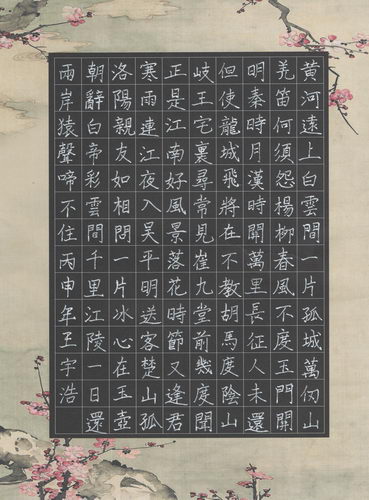 黃河遠上白雲間一片孤城萬仞山
羌笛何須怨楊柳春風不度玉門關
明秦時月漢時關萬里長征人未還
但使龍城飛將在不教胡馬度陰山
岐王宅裏尋常見崔九堂前幾度聞
正是江南好風景落花時節又逢君
寒雨連江夜入吳平明送客楚山孤
洛陽親友如相問一片冰心在玉壺
朝辭白帝彩雲間千里江陵一日還
兩岸猿聲啼不住丙申年王宇浩